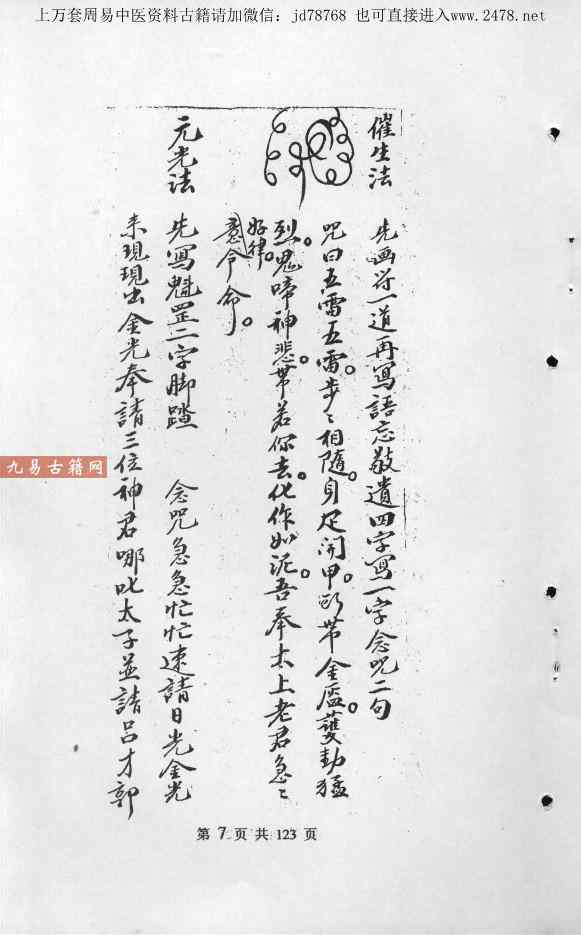 上万套周易中医资料古籍请加微信：jd78768 也可直接进入www.2478.net
催生法
先画符一道再寫語忘敬遺四字寫一字念咒二句
咒曰五雷五雷。步〻相隨。身足開甲。頭帶金盔。護勅猛
烈。鬼啼神悲。帶若你去。化作如泥。吾奉太上老君急〻
如律
令命。
元光法
先寫魁罡二字脚踏 念咒急急忙忙速請日光金光
来現現出金光奉請三位神君哪叱太子並請呂才郭
九易古籍网
第 7 页 共 123 页